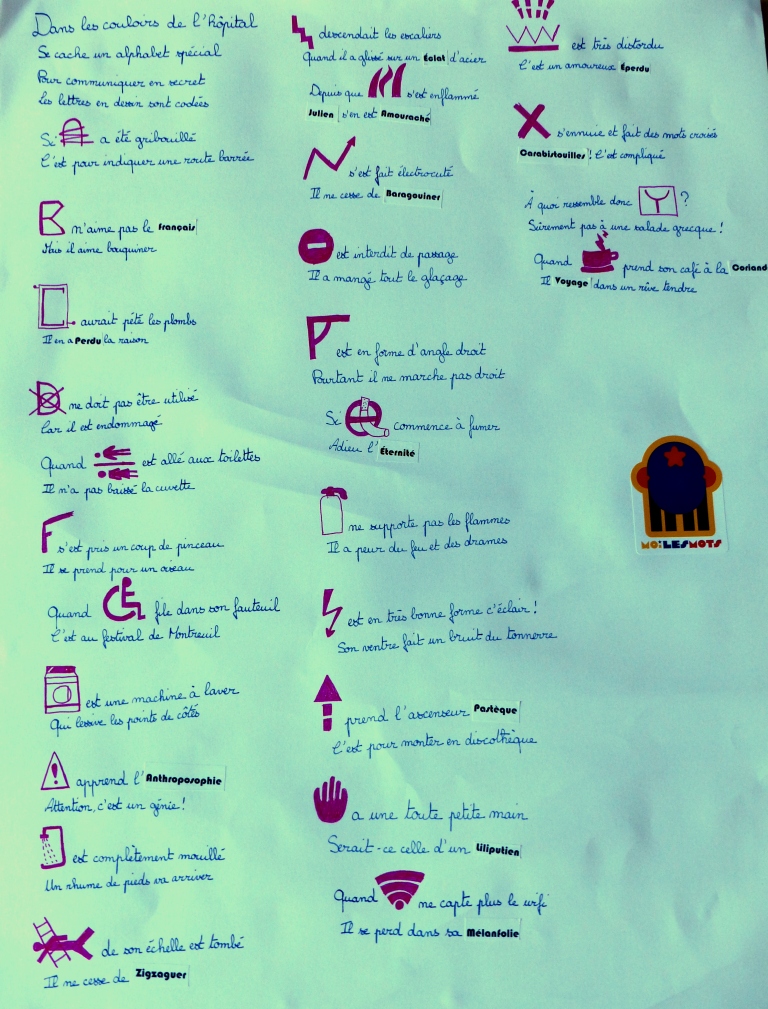 Dans les couloirs de l'hôpital
Se cache un alphabet spécial
Pour communiquer en secret
Les lettres en dessin sont codées
Si a été gribouillé
C'est pour indiquer une route barrée
B n'aime pas le français
Mais il aime bouquiner
C aurait pété les plombs
Il en a Perdu la raison
D ne doit pas être utilisé
Car il est endommagé
Quand est allé aux toilettes
Il n'a pas baissé la cuvette
F s'est pris un coup de pinceau
Il se prend pour un oiseau
Quand file dans son fauteuil
C'est au festival de Montreuil
est une machine à laver
Qui lessive les points de côtés
apprend l'Anthroposophie
Attention, c'est un génie !
est complètement mouillé
Un rhume de pieds va arriver
de son échelle est tombé
Il ne cesse de Zigzaguer
descendait les escaliers
Quand il a glissé sur un Éclat d'acier
Depuis que s'est enflammé
Julien s'en est Amouraché
N s'est fait électrocuté
Il ne cesse de Baragouiner
est interdit de passage
Il a mangé tout le glaçage
P est en forme d'angle droit
Pourtant il ne marche pas droit
Si commence à fumer
Adieu l'Éternité
ne supporte pas les flammes
Il a peur du feu et des drames
est en très bonne forme c'éclair !
Son ventre fait un bruit du tonnerre
prend l'ascenseur Pastèque
C'est pour monter en discothèque
a une toute petite main
Serait-ce celle d'un Liliputien
Quand ne capte plus le wifi
Il se perd dans sa Mélanfolie
W est très distordu
C'est un amoureux Éperdu
X s'ennuie et fait des mots croisés
Carabistouilles ! C'est compliqué
À quoi ressemble donc Y ?
Sûrement pas à une salade grecque !
Quand prend son café à la Coriand
Il Voyage dans un rêve tendre
MO:LESMOTS